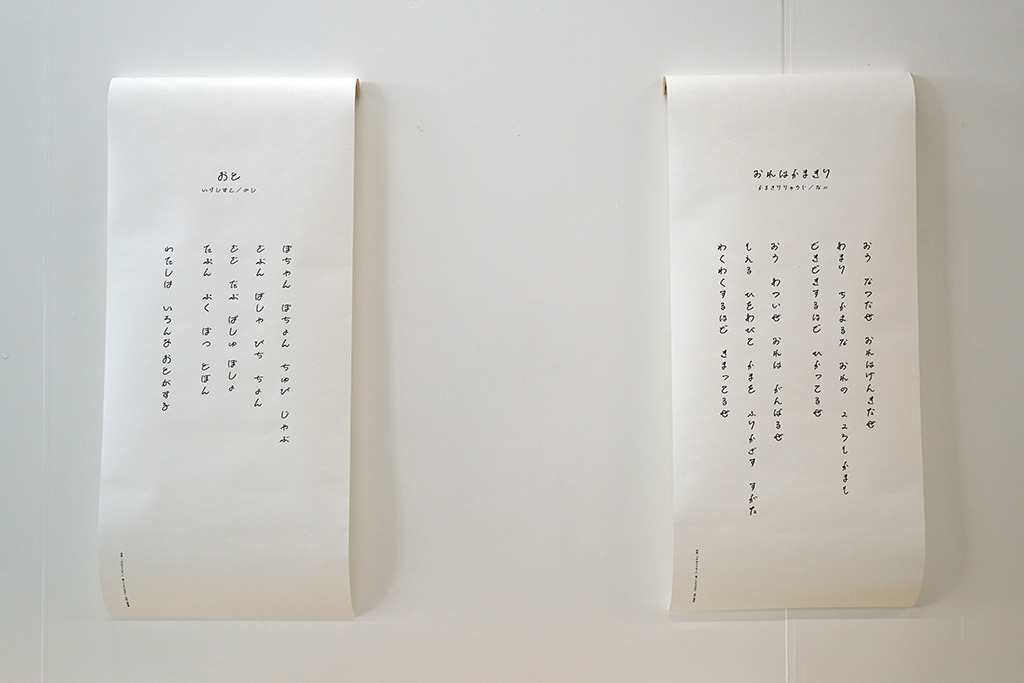 おと
いけしずこ
ぽちゃん ぽちょん ちゅぴ じゃぶ
ざぶん ばしゃ ぴち ちょん
ざざ だぶ ぱしゅ ぽしょ
たぷん ぷく ぽつ とぽん
わたしは いろんな おとがする
おれはかまきり
かまきりりゅうじ
おう なつだぜ おれはげんきだぜ
あまり ちかよるな おれの こころも かまも
どきどきするほど ひかってるぜ
おう あついぜ おれは がんばるぜ
もえる ひをあびて かまを ふりかざす すがた
わくわくするほど きまってるぜ